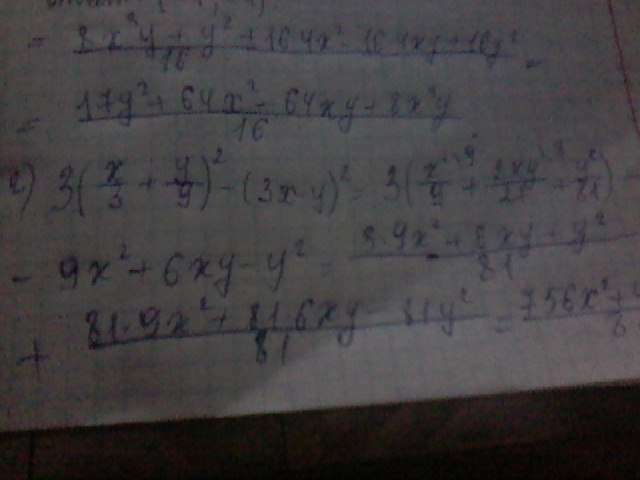 = 8x²y + y² + 16·4x² - 16·4xy + 16y² / 16 =
= 17y² + 64x² - 64xy + 8x²y / 16
2) 3(x/3 + y/9)² - (3x-y)² = 3(x²/9 + 2xy/27 + y²/81) -
- 9x² + 6xy - y² = 3·9x² + 6xy + y² / 81
+ 81·9x² + 81·6xy - 81y² / 81 = 756x² +